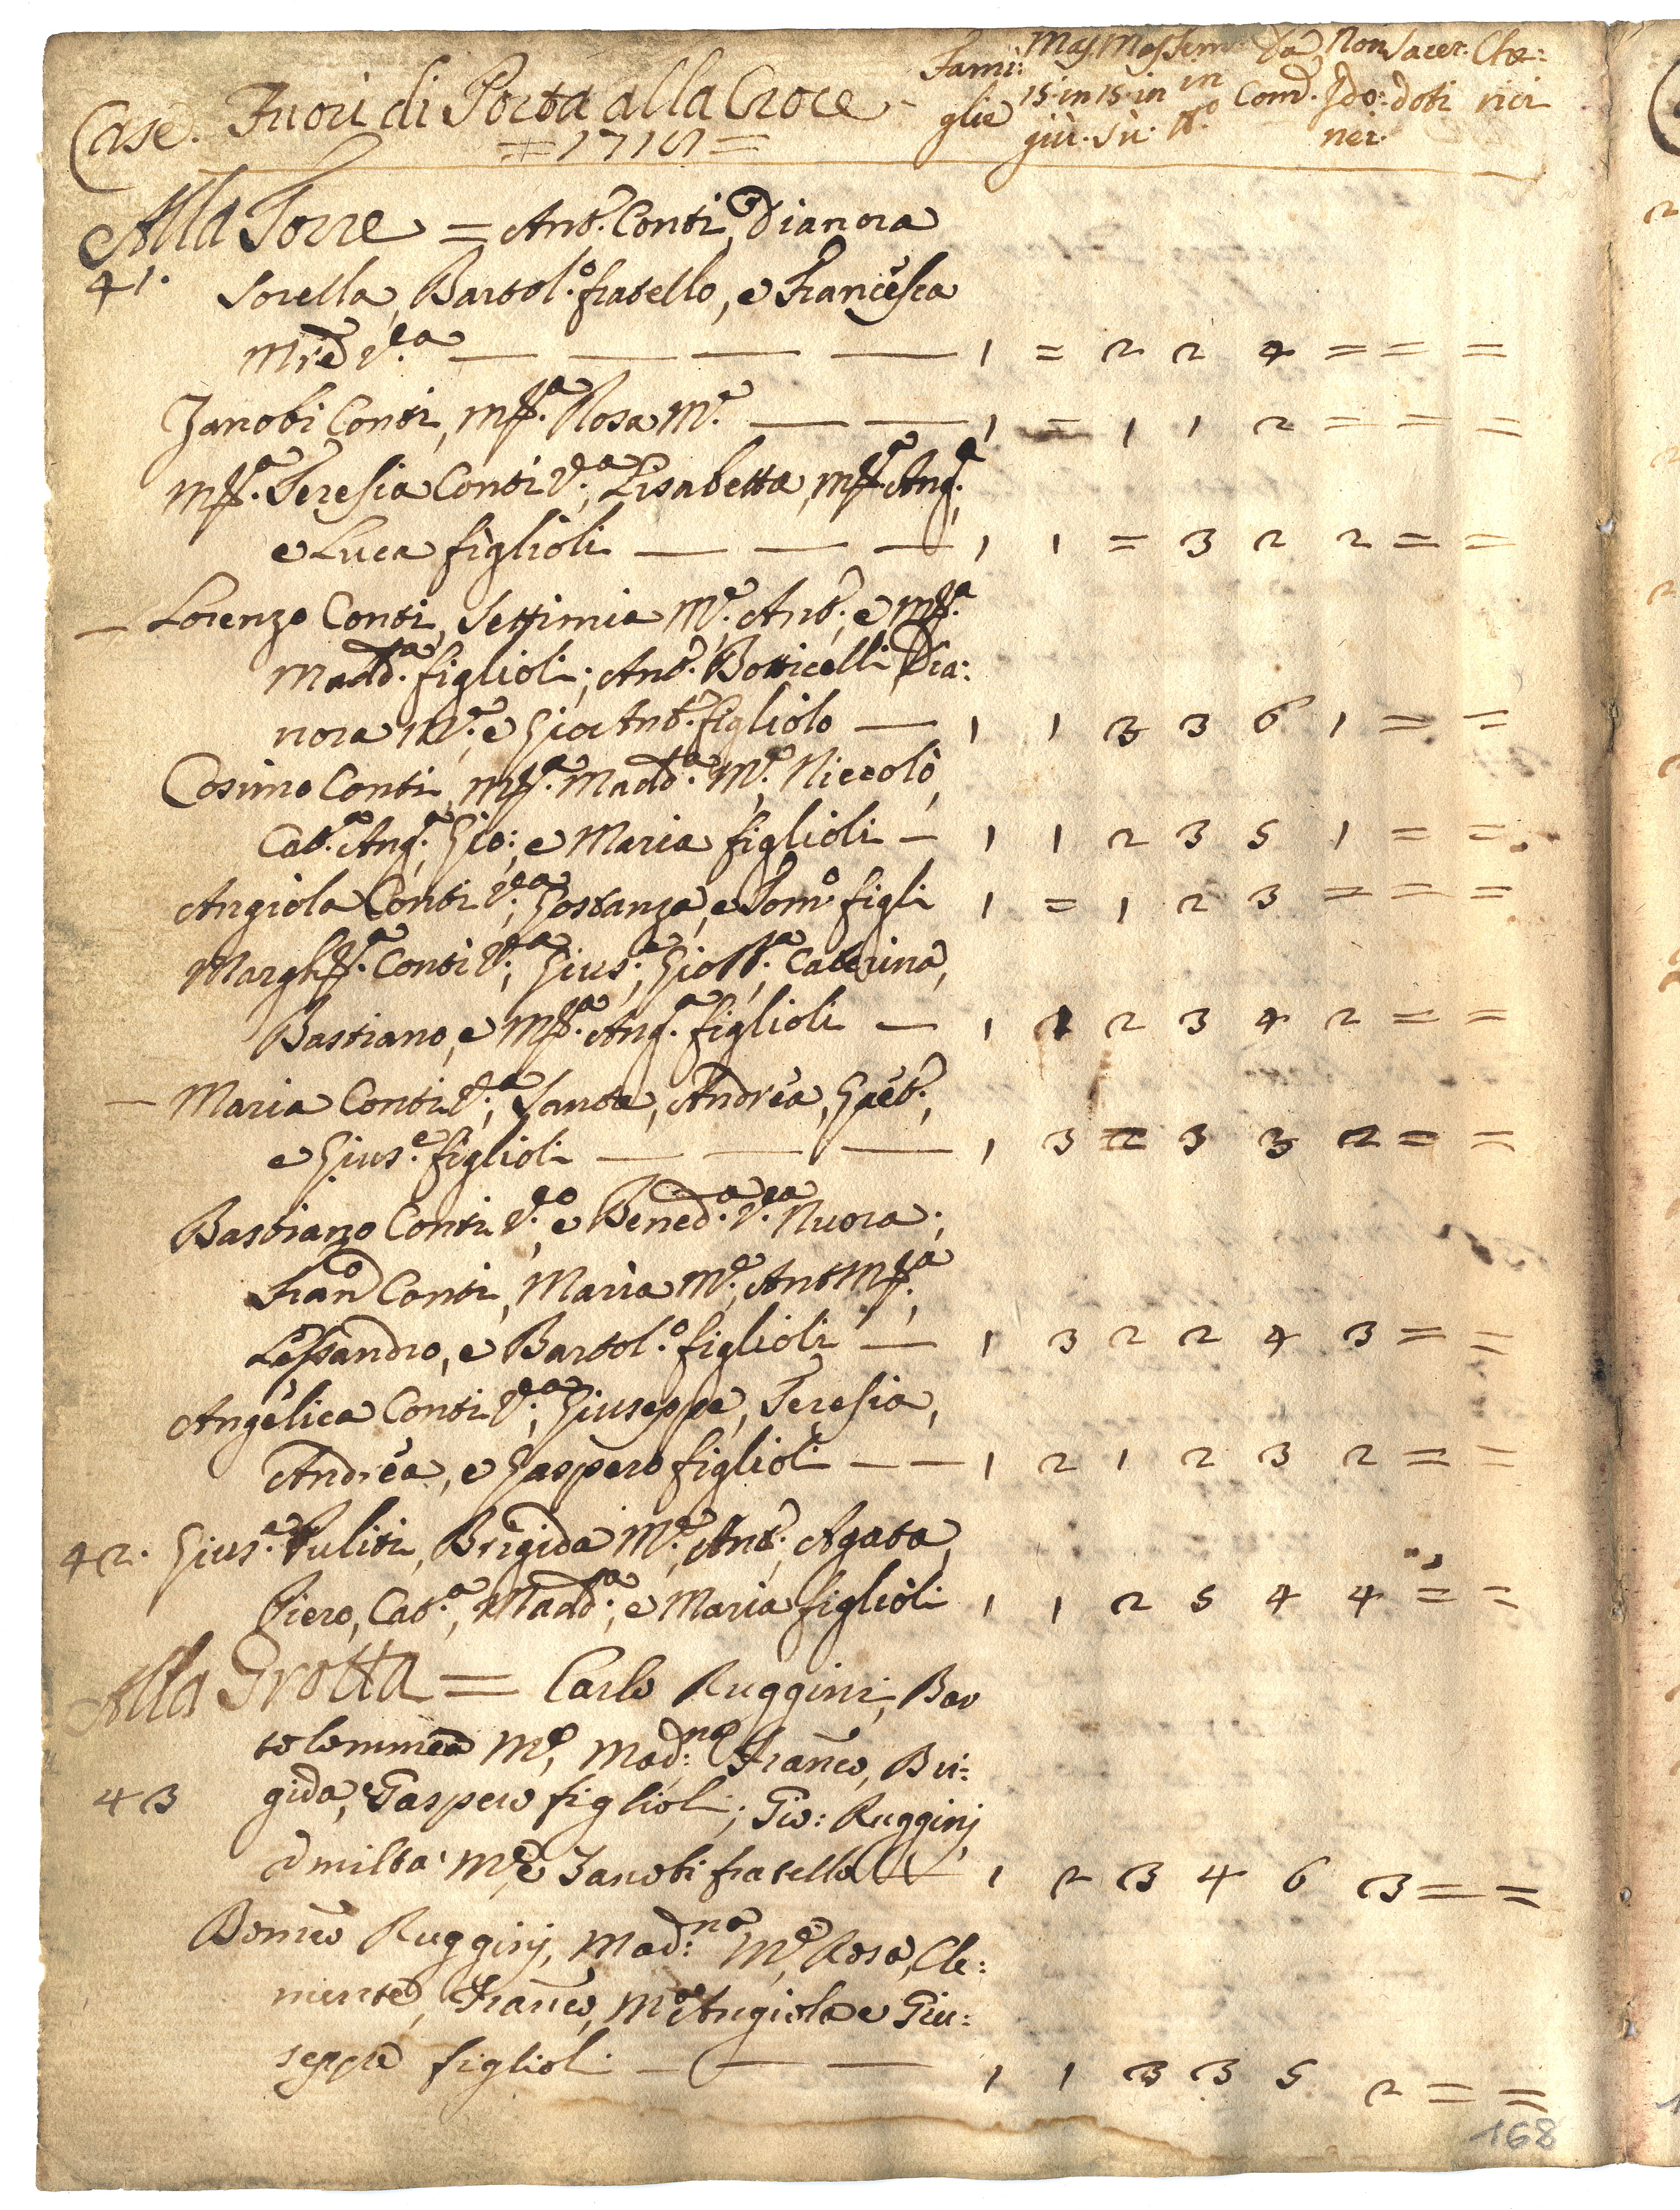 Case. Fuori di Porta alla Croce - Fami: glie Mas. 15. in giù. Mas. 15. in sù: Fem: in Nº. Da Com. Non Ido: nei. Sacer: doti Che: rici
=1715=
Alla Torre = Antº. Conti, Dianora
41. Sorella, Bartol.º fratello, e Francesca
Mre. V.ª — — — — 1 = 2 2 4 = = =
Zanobi Conti, Mª. Rosa Mᵉ. — — 1 = 1 1 2 = = =
Mª. Teresia Conti Vª., Lisabetta, Mª. Angª.,
e Luca figlioli — — — 1 1 = 3 2 2 = =
— Lorenzo Conti, Settimia Mᵉ., Antº., e Mª.
Maddª. figlioli; Antº. Botticelli, Dia:
nora Mᵉ., e Gio Antº. figliolo — 1 1 3 3 6 1 = =
Cosimo Conti, Mª. Maddª. Mᵉ., Niccolò,
Catª. Angª., Gio:, e Maria figlioli — 1 1 2 3 5 1 = =
Angiola Conti Vª., Gostanza, e Tomº figli 1 = 1 2 3 = = =
Marghª. Conti Vª., Giusᵉ., Gio Bª., Caterina,
Bastiano, e Mª. Angª. figlioli — 1 1 2 3 4 2 = =
— Maria Conti Vª., Santa, Andrea, Gaetº.,
e Giusᵉ. figlioli — — — 1 3 = 3 3 2 = =
Bastiano Conti Vº., e Benedª. Vª. Nuora;
Franº Conti, Maria Mᵉ., Ant Mª.,
Lessandro, e Bartol.º figlioli — 1 3 2 2 4 3 = =
Angelica Conti Vª., Giuseppe, Teresia,
Andrea, e Gaspero figlioli — — 1 2 1 2 3 2 = =
42. Giusᵉ. Puliti, Brigida Mᵉ., Antº., Agata,
Piero, Catª., Maddª., e Maria figlioli 1 1 2 5 4 4 = =
Alla Grotta = Carlo Ruggini, Bar
tolommea Mᵉ, Mad:ⁿᵃ Franco, Bri:
43 gida, Gaspero figlioli; Gio: Ruggini,
Mᵉ, e Zanobi fratello — 1 2 3 4 6 3 = =
Domco Ruggini, Mad:ⁿᵃ Mᵉ, Rosa, Cle:
mente, Franco, Mª Angiola e Giu:
seppe figlioli — — — 1 1 3 3 5 2 = =
168